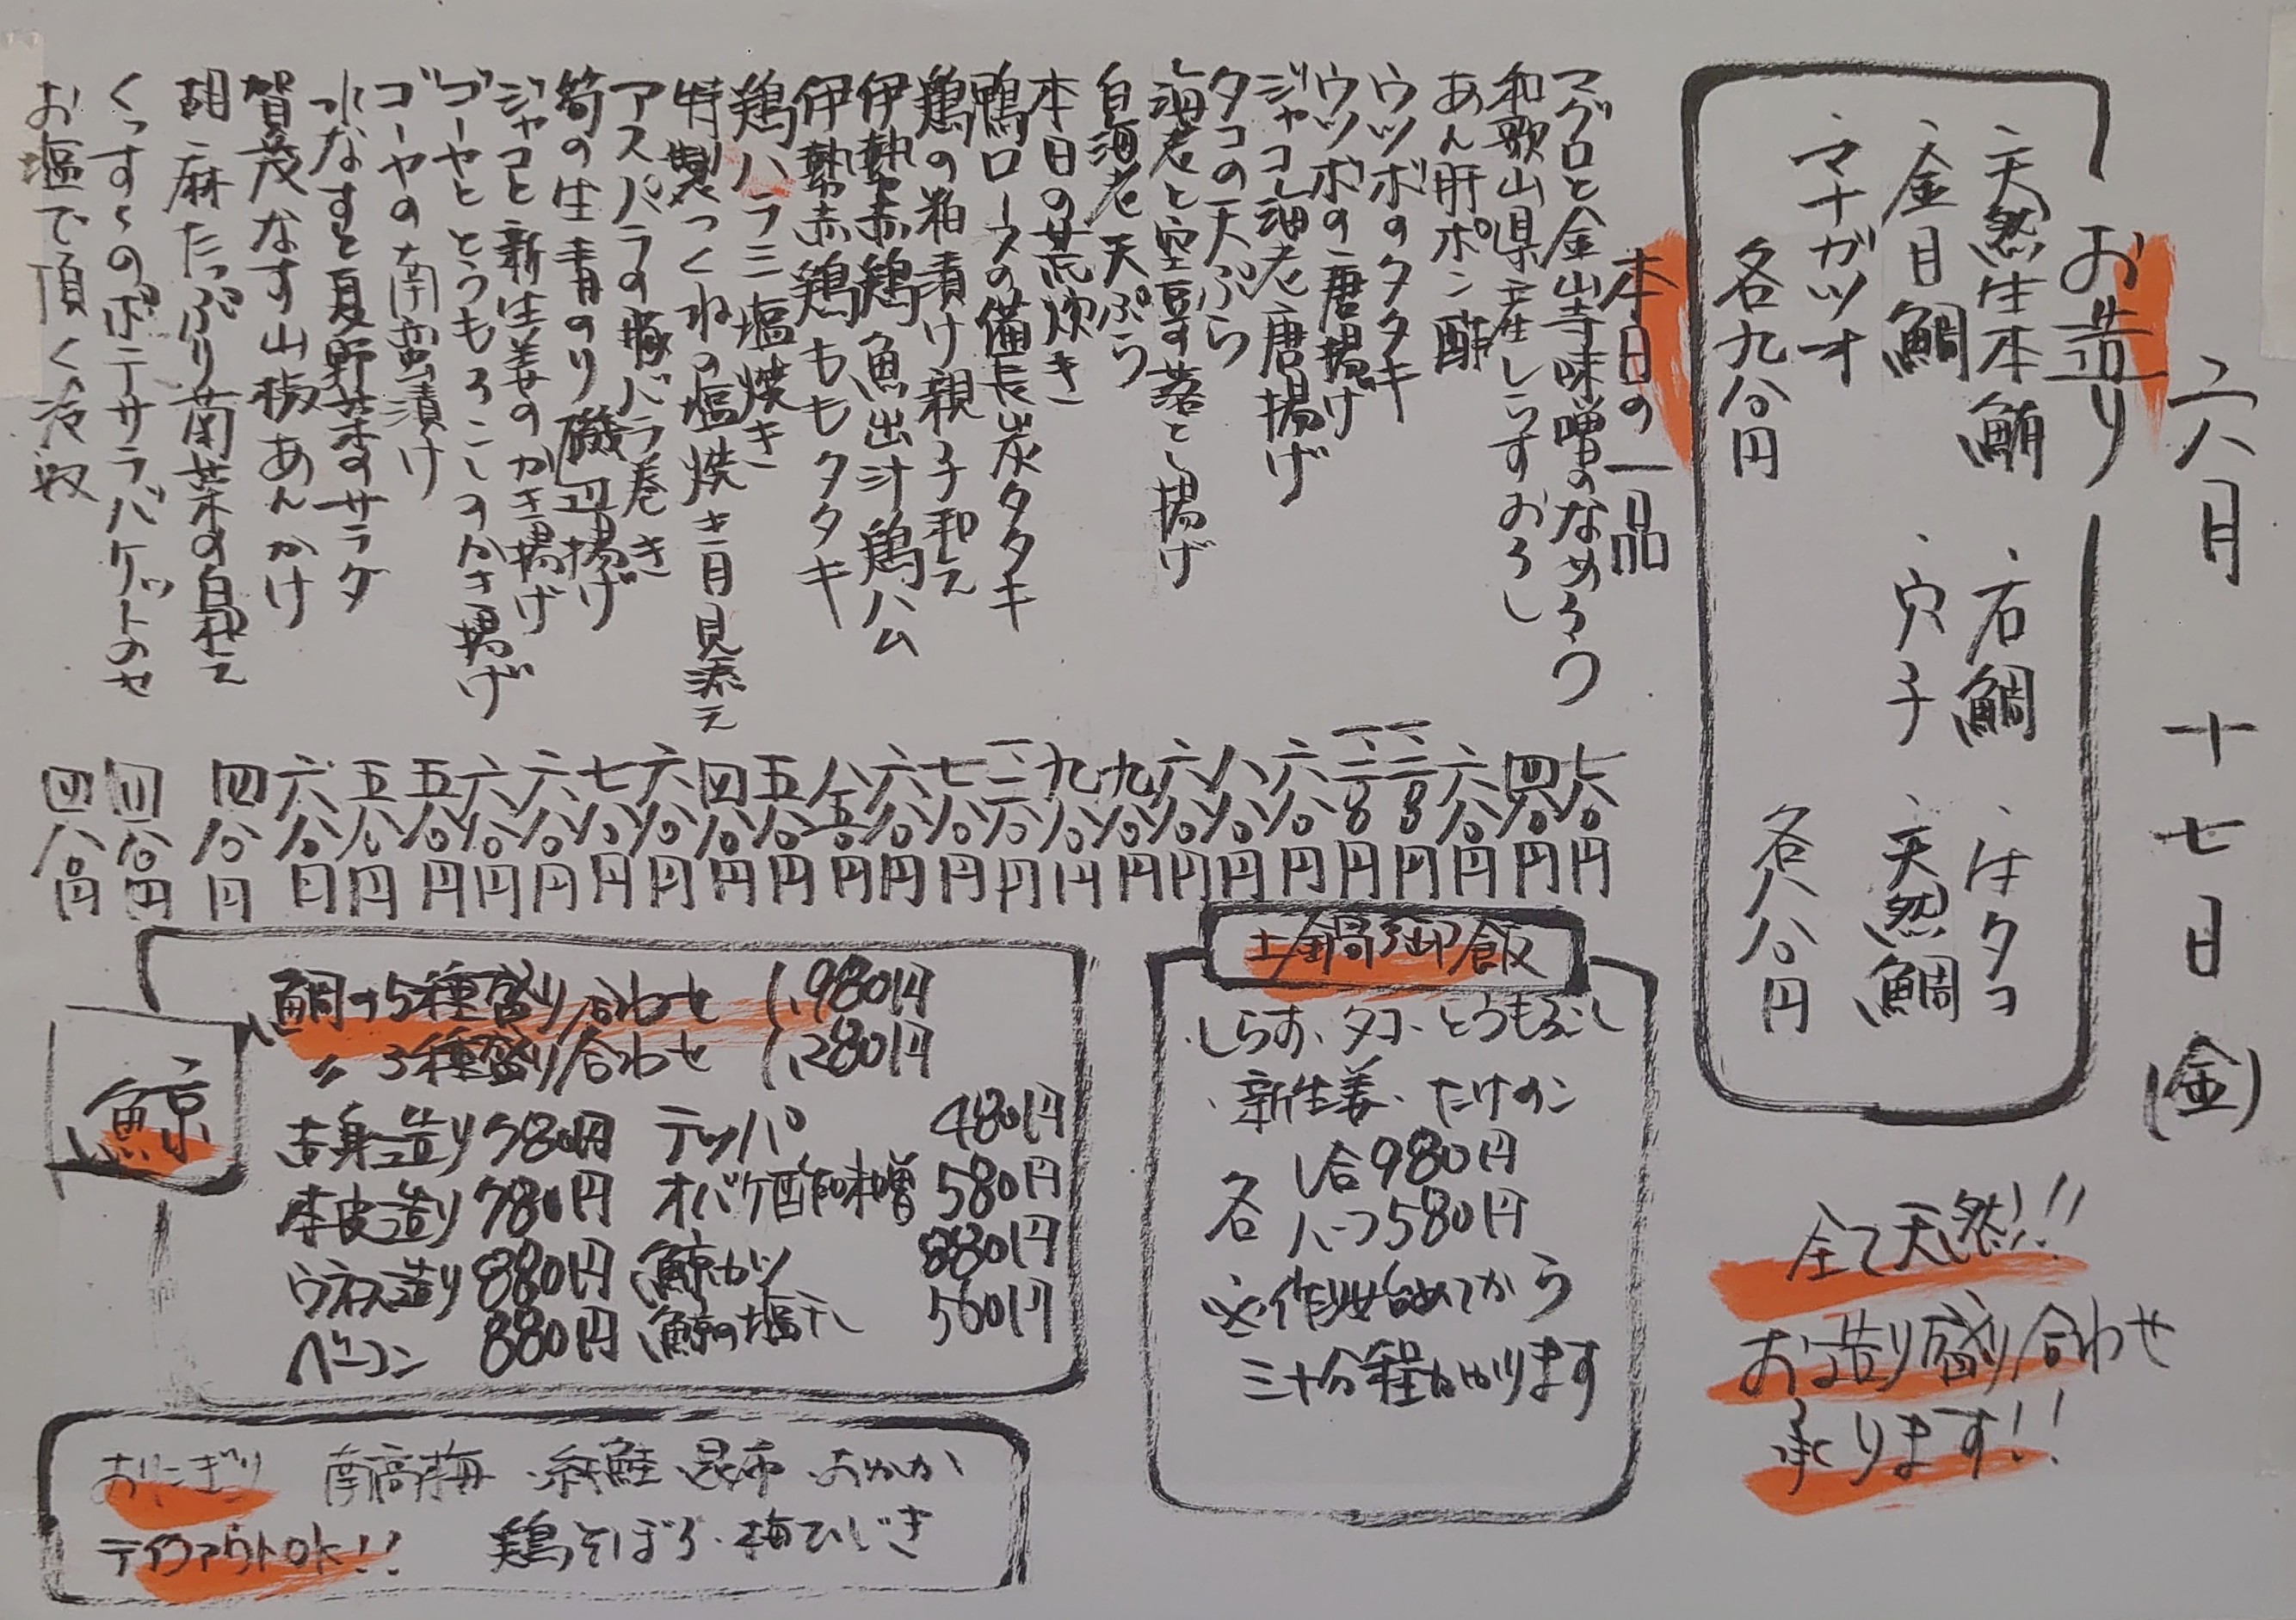 六月十七日(金)
お造り
・天然生本鮪 ・石鯛 ・生タコ
・金目鯛 ・穴子 ・天然鯛
・マナガツオ
各九八〇円 各八八〇円
全て天然!!
お造り盛り合わせ
承ります!!
本日の一品
マグロと金山寺味噌のなめろう 七八〇円
和歌山県産しらすおろし 四八〇円
あん肝ポン酢 六八〇円
ウツボのタタキ
ウツボの唐揚げ
ジャコ海老唐揚げ 六八〇円
タコの天ぷら 八八〇円
海老と空豆落とし揚げ 六八〇円
白海老天ぷら 九八〇円
本日の荒炊き 九八〇円
鴨ロースの備長炭タタキ
鶏の粕漬け親子和え 七八〇円
伊勢赤鶏魚出汁鶏ハム 六八〇円
伊勢赤鶏ももタタキ 八五〇円
鶏ハラミ塩焼き 五八〇円
特製つくねの塩焼き月見添え 四八〇円
アスパラの豚バラ巻き 六八〇円
筍の生青のり磯辺揚げ 七八〇円
ジャコと新生姜のかき揚げ 六八〇円
ゴーヤととうもろこしのかき揚げ 六八〇円
ゴーヤの南蛮漬け 五八〇円
水なすと夏野菜のサラダ 五八〇円
賀茂なす山椒あんかけ 六八〇円
胡麻たっぷり菊菜の白和え 四八〇円
くっすくのポテサラバケットのせ 四八〇円
お塩で頂く冷奴 四八〇円
土鍋御飯
・しらす・タコ・とうもろこし
・新生姜・たけのこ
各 1合980円
ハーフ580円
※作り始めてから
三十分程かかります
鯨
鯨の5種盛り合わせ 1,980円
〃 3種盛り合わせ 1,280円
赤身造り 780円 テッパ 480円
本皮造り 780円 オバケ酢味噌 580円
ウネス造り 880円 鯨カツ 880円
ベーコン 880円 鯨の塩干し 580円
おにぎり 南高梅・紅鮭・昆布・おかか
テイクアウトOK!! 鶏そぼろ・梅ひじき